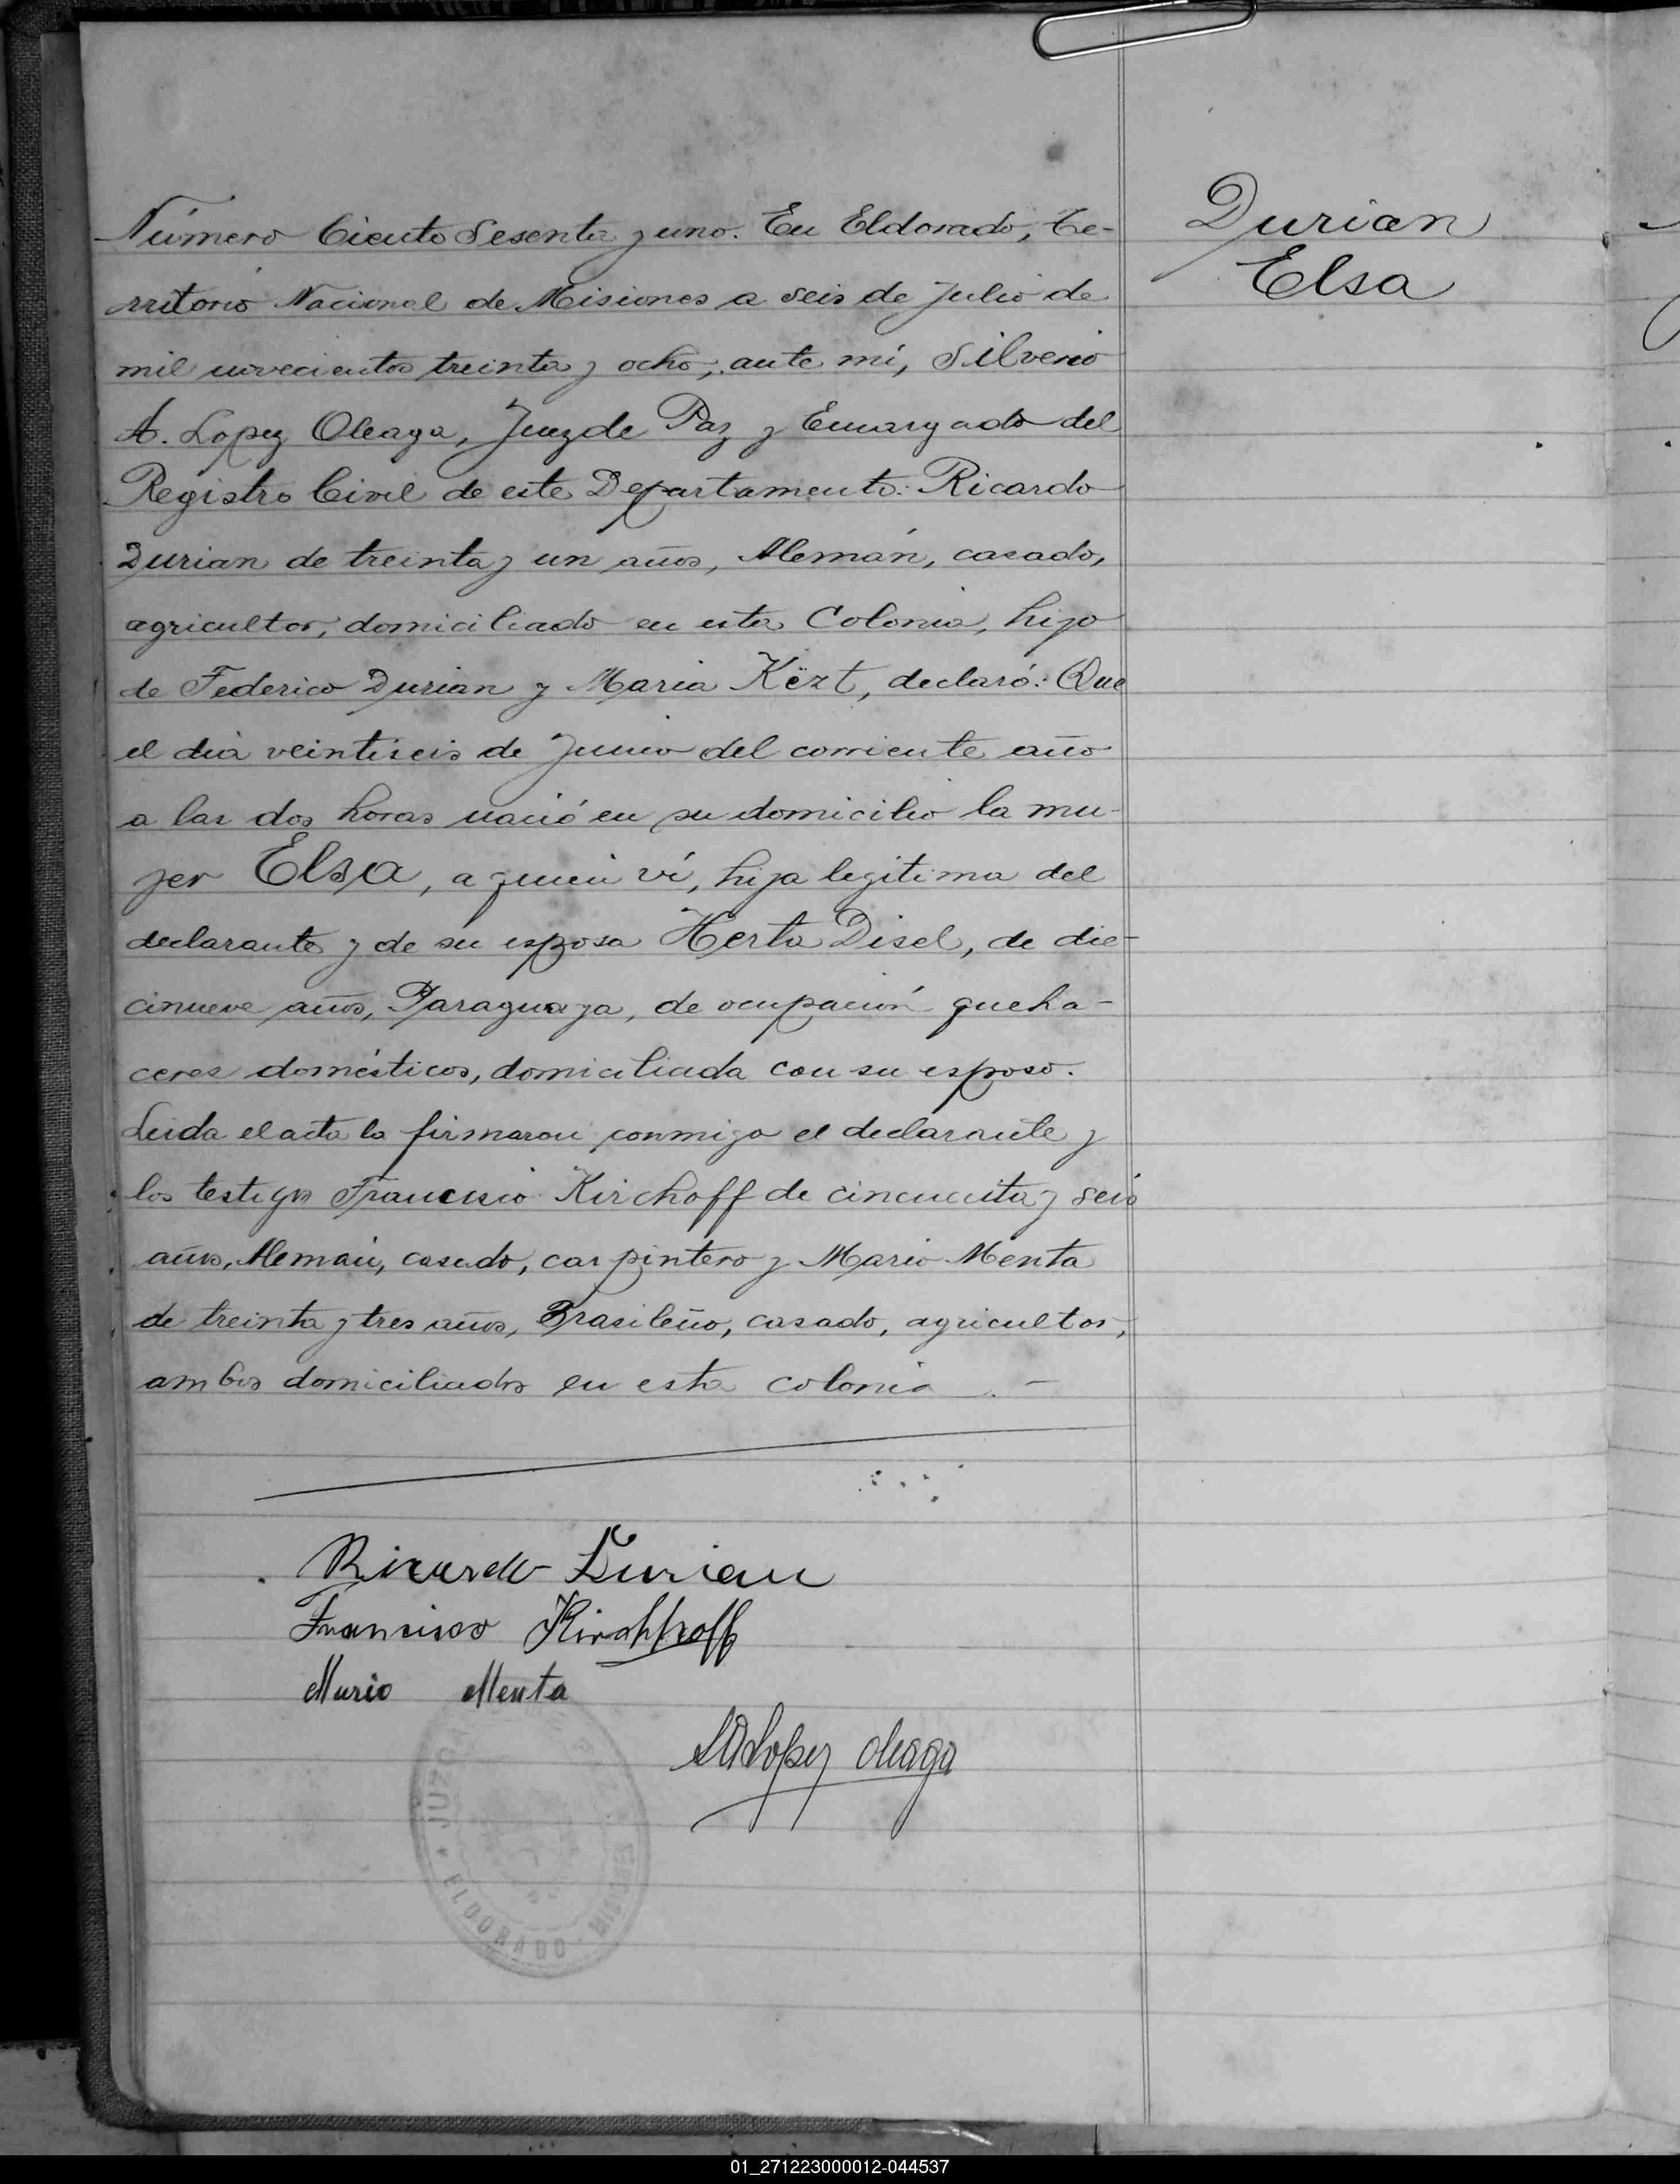 Número Ciento Sesenta y uno. En Eldorado, Te-
rritorio Nacional de Misiones a seis de Julio de
mil novecientos treinta y ocho, ante mí, Silverio
A. Lopez Oleaga, Juez de Paz y Encargado del
Registro Civil de este Departamento: Ricardo
Durian de treinta y un años, Alemán, casado,
agricultor, domiciliado en esta Colonia, hijo
de Federico Durian y Maria Këzt, declaró: Que
el dia veintiseis de Junio del corriente año
a las dos horas nació en su domicilio la mu-
jer Elsa, a quien ví, hija legitima del
declarante y de su esposa Herta Disel, de die-
cinueve años, Paraguaya, de ocupación queha-
ceres domésticos, domiciliada con su esposo.
Leida el acta la firmaron conmigo el declarante y
los testigos Francisco Kirchoff de cincuenta y seis
años, Alemán, casado, carpintero y Mario Menta
de treinta y tres años, Brasileño, casado, agricultor,
ambos domiciliados en esta colonia . -
Durian
Elsa
Ricardo Durian
Francisco Kirchhoff
Mario Menta
SALopez Oleaga
JUZGA
ELDORADO - MISIONES
01_271223000012-044537